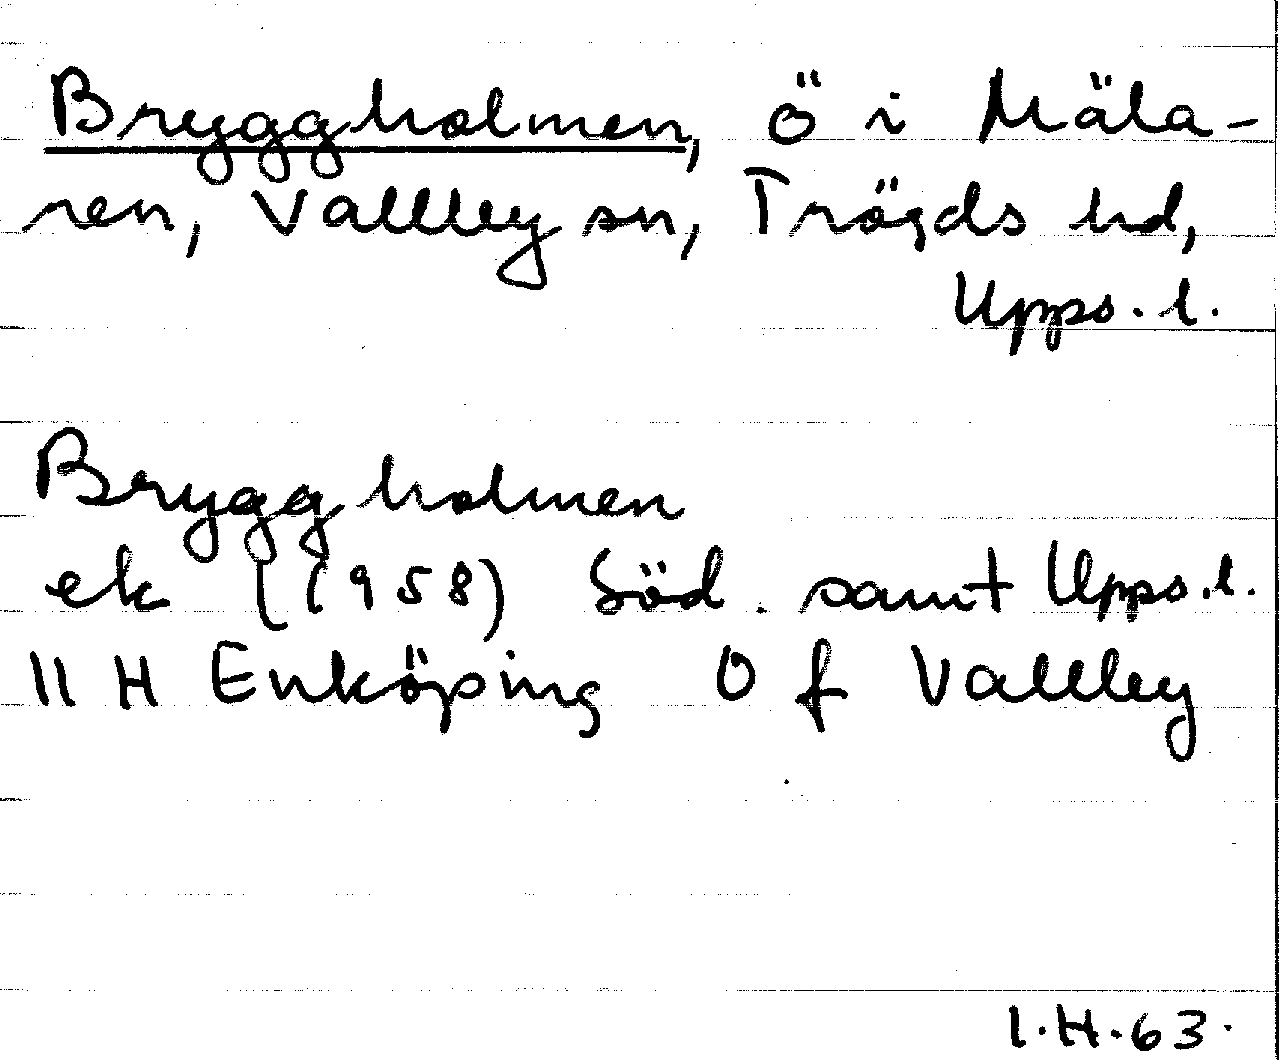 Bryggholmen, ö i Mäla-
ren, Vallby sn, Trögds hd,
Upps. l.
Bryggholmen
ek ((1958) Söd. samt Upps. l.
11 H Enköping O f Vallby
I.H.63.